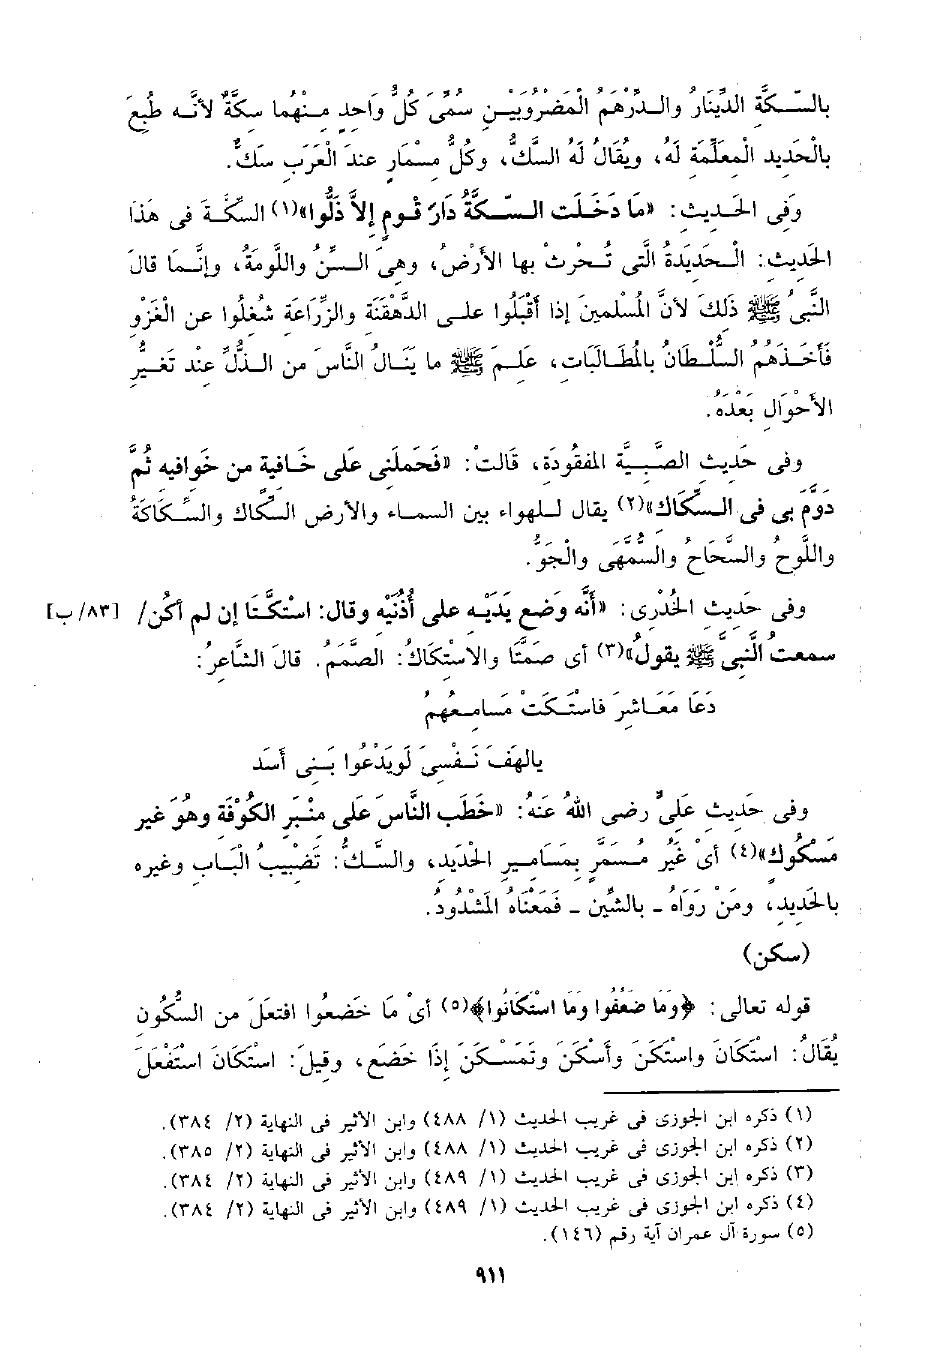 بالسّكَّة الدِّينَارُ والدِّرْهَمُ الْمَضْرُوبَيْن سُمِّىَ كُلُّ وَاحد مِنْهُما سكَّةٌ لأنَّه طُبِعَ
بالْحَديد الْمعَلِّمَة لَهُ، ويُقَالُ لَهُ السَّكُّ، وكُلُّ مسْمَارٍ عندَ الْعَرَب سَكٌّ.
وَفى الحَديث: «مَا دَخَلَت السّكَّةُ دَارَ قَومٍ إلاَّ ذَلُّوا»(١) السِّكَّةَ فى هَذَا
الحَديث: الْحَديدَةُ الَّتى تُحْرثْ بها الأرْضُ، وهىَ السِّنُّ واللُّومَةُ، وإنَّما قالَ
النَّبىُّ ﷺ ذَلكَ لأنَّ المُسْلمينَ إذا أقْبَلُوا على الدَّهْقَنَة والزِّرَاعَة شُغلُوا عن الْغَزْو
فَأخَذَهُمُ السُّلْطَانُ بالمُطَالبَات، عَلمَ ﷺ ما يَنَالُ النَّاسَ من الذُّلِّ عنْد تَغيُّر
الأحْوَال بَعْدَهُ.
وفى حَديث الصَّبيَّة المفقُودَة، قَالتْ: «فَحَملَنى عَلى خَافية من خَوافيه ثُمَّ
دَوَّمَ بى فى السُّكَاك»(٢) يقال للهواء بين السماء والأرض السُّكاك والسُّكَاكَةُ
واللُّوحُ والسَّحَاحُ والسُّمَّهَى والْجَوُّ.
وفى حَديث الخُدْرى: «أنَّه وَضع يَدَيْه على أُذُنَيْه وقال: اسْتَكَّتَا إن لم أكُن/ [٨٣/ ب]
سمعتُ النَّبىَّ ﷺ يقولُ»(٣) أى صَمتَّا والاسْتكَاكُ: الصَّمَمُ. قالَ الشَّاعرُ:
دَعَا مَعَاشرَ فاسْتَكتْ مَسَامعُهمُ
يالهَفَ نَفْسىَ لَويَدْعُوا بَنى أسَد
وفى حَديث عَلىٍّ رضى اللهُ عَنهُ: «خَطَب النَّاسَ عَلى منْبَر الكُوْفَة وهُوَ غَير
مَسْكُوك»(٤) أىْ غَيْرُ مُسَمَّرٍ بمَسَامير الحْديد، والسَّكُّ: تَضْبيبُ الْبَاب وغيره
بالحَديد، ومَنْ رَوَاهُ - بالشِّين - فَمَعْنَاهُ المَشْدُودُ.
(سكن)
قوله تعالى: ﴿وَمَا ضَعُفُوا وَمَا اسْتَكَانُوا﴾(٥) أىْ مَا خَضعُوا افتعَلَ من السُّكُون
يُقَالُ: اسْتَكَانَ واسْتَكَنَ وأسْكَنَ وتَمَسْكَنَ إذَا خَضَع، وقيلَ: اسْتكَانَ اسْتَفْعَلَ
(١) ذكره ابن الجوزى فى غريب الحديث (١/ ٤٨٨) وابن الأثير فى النهاية (٢/ ٣٨٤).
(٢) ذكره ابن الجوزى فى غريب الحديث (١/ ٤٨٨) وابن الأثير فى النهاية (٢/ ٣٨٥).
(٣) ذكره ابن الجوزى فى غريب الحديث (١/ ٤٨٩) وابن الأثير فى النهاية (٢/ ٣٨٤).
(٤) ذكره ابن الجوزى فى غريب الحديث (١/ ٤٨٩) وابن الأثير فى النهاية (٢/ ٣٨٤).
(٥) سورة آل عمران آية رقم (١٤٦).
٩١١